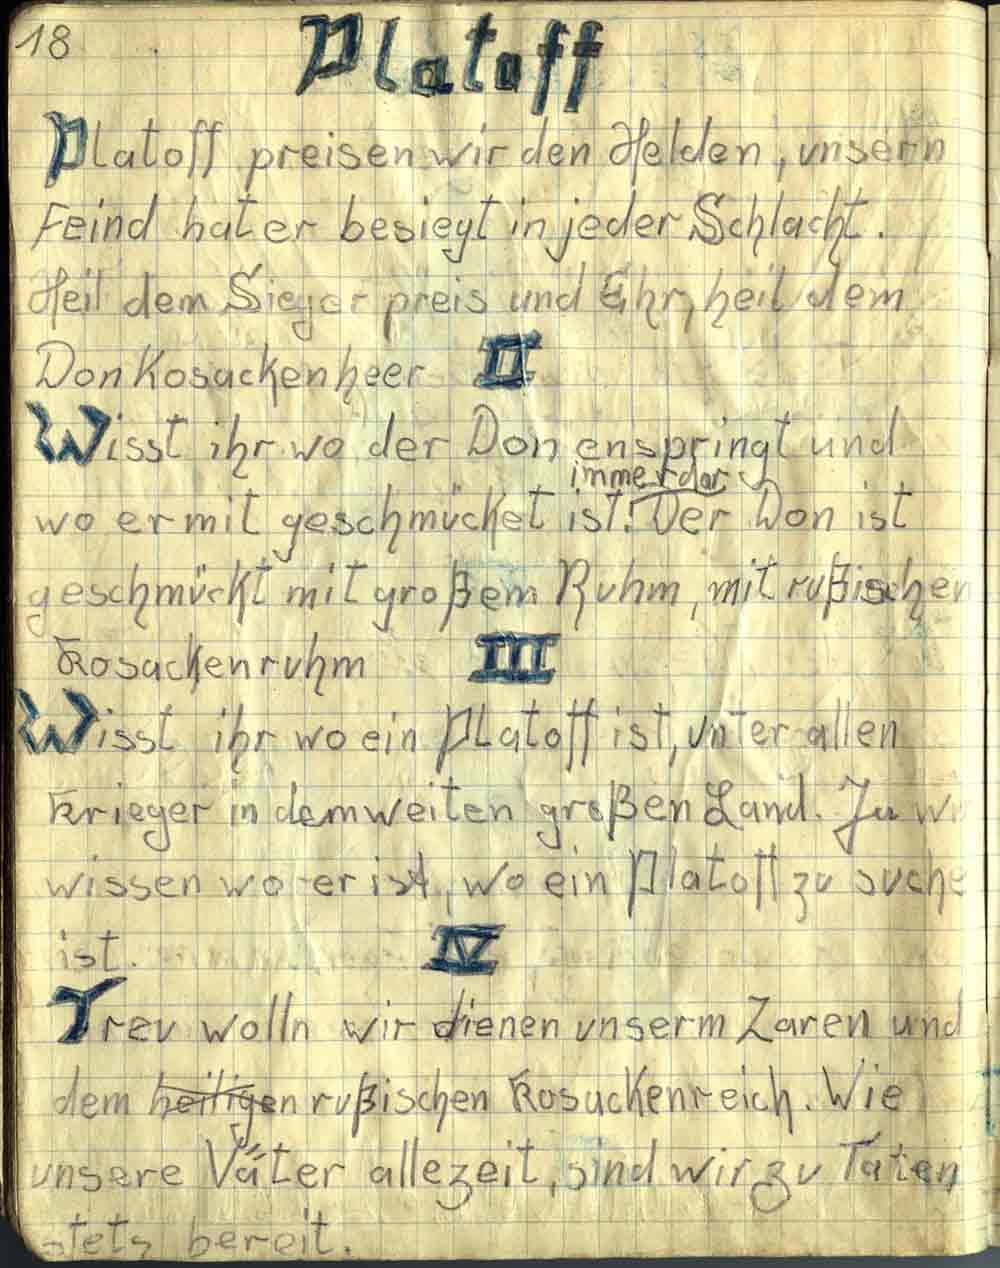 18
Platoff
Platoff preisen wir den Helden, unsern
Feind hat er besiegt in jeder Schlacht.
Heil dem Sieger preis und Ehr, heil dem
Don Kosackenheer II
Wisst ihr wo der Don enspringt und
immerdar
wo er mit geschmücket ist? Der Don ist
geschmückt mit großem Ruhm, mit rußischen
Kosackenruhm III
Wisst ihr wo ein Platoff ist, unter allen
Krieger in dem weiten großen Land. Ja
wissen wo er ist, wo ein Platoff zu suche
ist. IV
Treu wolln wir dienen unserm Zaren und
dem heiligen rußischen Kosackenreich. Wie
unsere Väter allezeit, sind wir zu Taten
stets bereit.